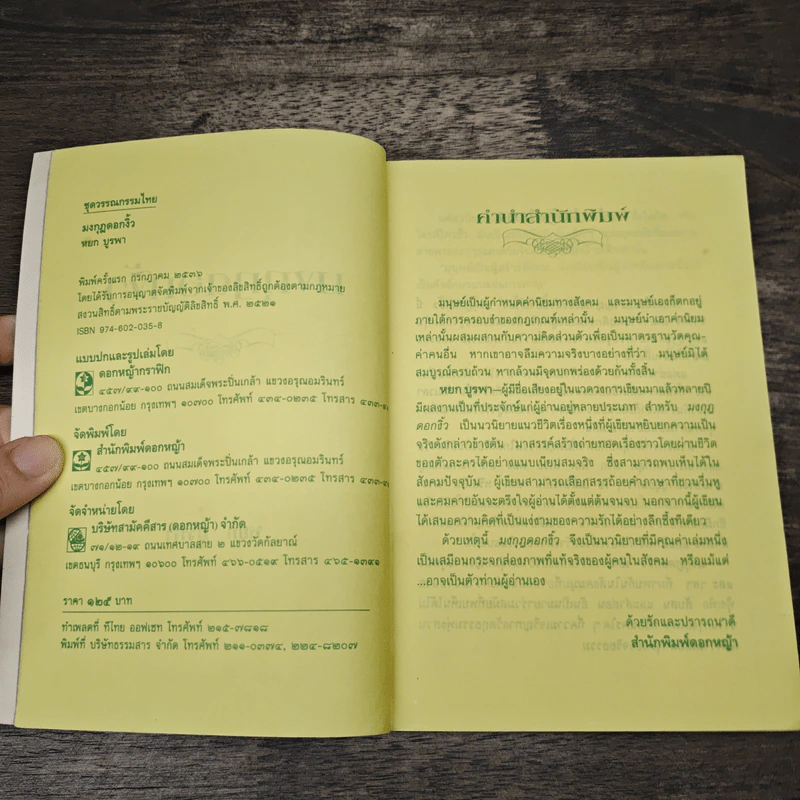 ชุดวรรณกรรมไทย
มงกุฎดอกงิ้ว
หยก บูรพา
พิมพ์ครั้งแรก กรกฎาคม ๒๕๓๖
โดยได้รับการอนุญาตจัดพิมพ์จากเจ้าของลิขสิทธิ์ถูกต้องตามกฎหมาย
สงวนสิทธิ์ตามพระราชบัญญัติลิขสิทธิ์ พ.ศ. ๒๕๒๑
ISBN 974-602-035-8
แบบปกและรูปเล่มโดย
ดอกหญ้ากราฟิก
๔๕๗/๙๙-๑๐๐ ถนนสมเด็จพระปิ่นเกล้า แขวงอรุณอมรินทร์
เขตบางกอกน้อย กรุงเทพฯ ๑๐๗๐๐ โทรศัพท์ ๔๓๔-๐๒๓๕ โทรสาร
จัดพิมพ์โดย
สำนักพิมพ์ดอกหญ้า
๔๕๗/๙๙-๑๐๐ ถนนสมเด็จพระปิ่นเกล้า แขวงอรุณอมรินทร์
เขตบางกอกน้อย กรุงเทพฯ ๑๐๗๐๐ โทรศัพท์ ๔๓๔-๐๒๓๕ โทรสาร
จัดจำหน่ายโดย
บริษัทสามัคคีสาร (ดอกหญ้า) จำกัด
๗๑/๑๒-๑๙ ถนนเทศบาลสาย ๒ แขวงวัดกัลยาณ์
เขตธนบุรี กรุงเทพฯ ๑๐๖๐๐ โทรศัพท์ ๔๖๖-๐๕๑๙ โทรสาร ๔๖๕-๑๓๙๑
ราคา ๑๒๕ บาท
ทำเพลตที่ ทีไทย ออฟเซท โทรศัพท์ ๒๑๕-๗๘๑๘
พิมพ์ที่ บริษัทธรรมสาร จำกัด โทรศัพท์ ๒๑๑-๐๓๗๔, ๒๒๔-๘๒๐๗
คำนำสำนักพิมพ์
มนุษย์เป็นผู้กำหนดค่านิยมทางสังคม และมนุษย์เองก็ตกอยู่
ภายใต้การครอบงำของกฎเกณฑ์เหล่านั้น มนุษย์นำเอาค่านิยม
เหล่านั้นผสมผสานกับความคิดส่วนตัวเพื่อเป็นมาตรฐานวัดคุณ-
ค่าคนอื่น หากเขาอาจลืมความจริงบางอย่างที่ว่า มนุษย์มิได้
สมบูรณ์ครบถ้วน หากล้วนมีจุดบกพร่องด้วยกันทั้งสิ้น
หยก บูรพา—ผู้มีชื่อเสียงอยู่ในแวดวงการเขียนมาแล้วหลายปี
มีผลงานเป็นที่ประจักษ์แก่ผู้อ่านอยู่หลายประเภท สำหรับ มงกุฎ
ดอกงิ้ว เป็นนวนิยายแนวชีวิตเรื่องหนึ่งที่ผู้เขียนหยิบยกความเป็น
จริงดังกล่าวข้างต้น มาสรรค์สร้างถ่ายทอดเรื่องราวโดยผ่านชีวิต
ของตัวละครได้อย่างแนบเนียนสมจริง ซึ่งสามารถพบเห็นได้ใน
สังคมปัจจุบัน ผู้เขียนสามารถเลือกสรรถ้อยคำภาษาที่ชวนรื่นหู
และคมคายอันจะตรึงใจผู้อ่านได้ตั้งแต่ต้นจนจบ นอกจากนี้ผู้เขียน
ได้เสนอความคิดที่เป็นแง่งามของความรักได้อย่างลึกซึ้งทีเดียว
ด้วยเหตุนี้ มงกุฎดอกงิ้ว จึงเป็นนวนิยายที่มีคุณค่าเล่มหนึ่ง
เป็นเสมือนกระจกส่องภาพที่แท้จริงของผู้คนในสังคม หรือแม้แต่
...อาจเป็นตัวท่านผู้อ่านเอง
ด้วยรักและปรารถนาดี
สำนักพิมพ์ดอกหญ้า